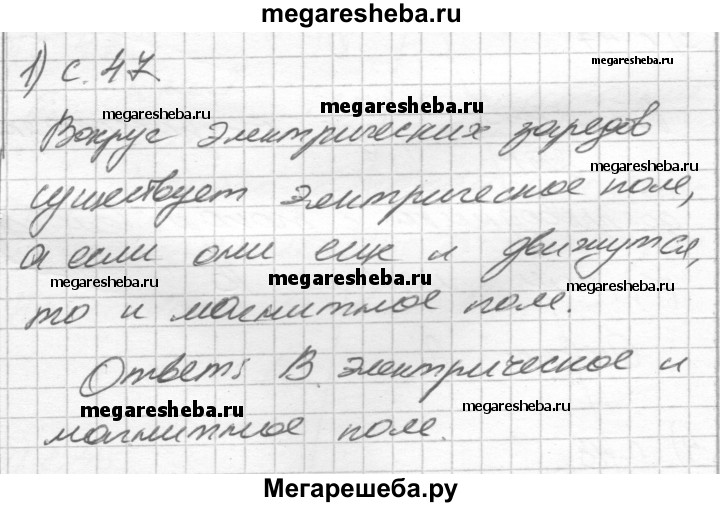 megaresheba.ru
1) с. 47
megaresheba.ru
megaresheba.ru
megaresheba.ru
Вокруг электрических зарядов
megaresheba.ru
существует элетрическое поле,
а если они еще и движутся,
megaresheba.ru
megaresheba.ru
megaresheba.ru
то и магнитное поле.
Ответ: В. электрическое и
megaresheba.ru
megaresheba.ru
магнитное поле.
Мегарешеба.ру